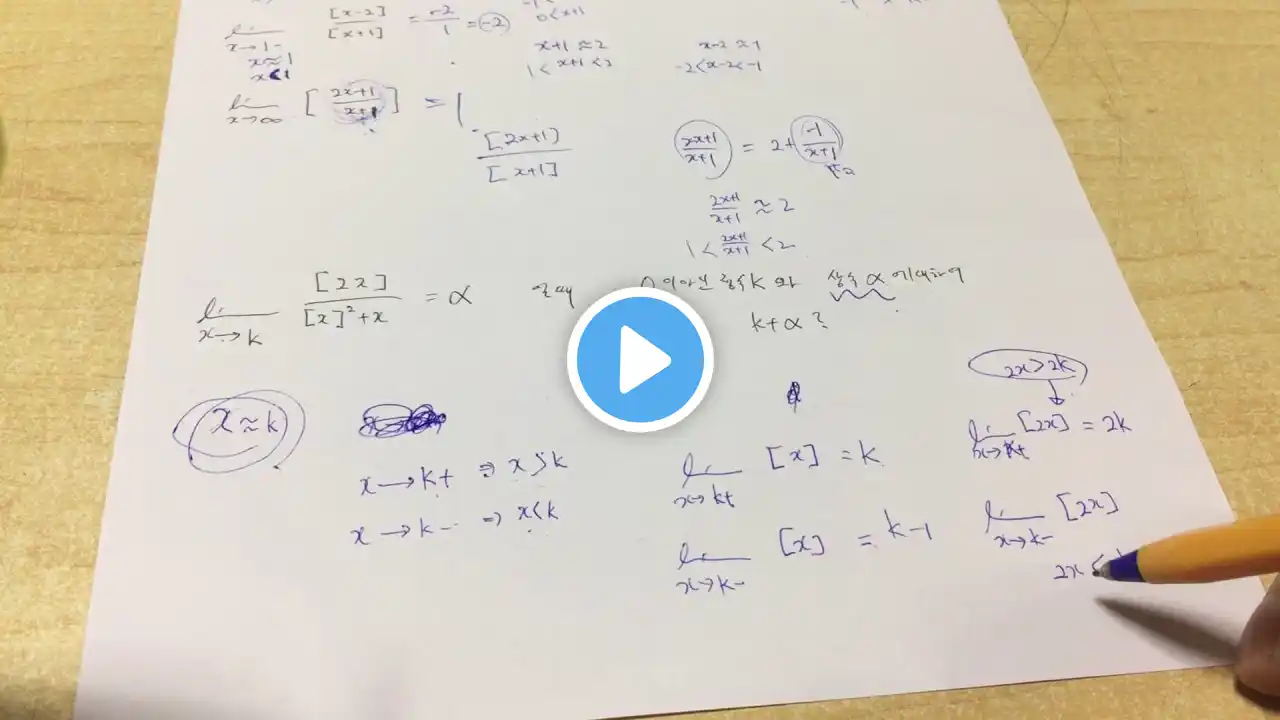 lim x→1- [x-2]/[x+1] = -2/1 = -2
0<x+1
x≈1
x<1
x+1≈2
1<x+1<2
x-2≈-1
-2<x-2<-1
lim x→∞ [2x+1/x+1] = 1
[2x+1]/[x+1]
2x+1/x+1 = 2+ -1/x+1
2x+1/x+1 ≈ 2
1<2x+1/x+1<2
lim x→k [2x]/[x]²+x = α
k와 상수 α에 대하여
k+α?
x≈k
x→k+ ⇒ x>k
x→k- ⇒ x<k
lim x→k+ [x] = k
lim x→k- [x] = k-1
2x>2k
lim x→k+ [2x] = 2k
lim x→k- [2x]
2x<